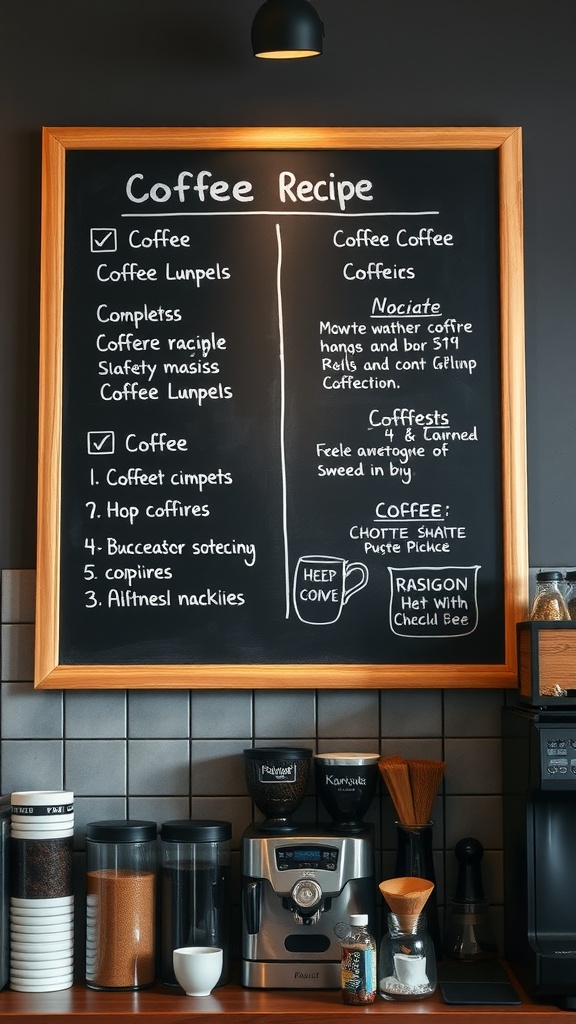 Coffee Recipe
Coffee
Coffee Lunpels
Completss
Coffere raciple
Slafety masiss
Coffee Lunpels
Coffee
1. Coffeet cimpets
7. Hop coffires
4. Bucceator sotecing
5. copiires
3. Alftnesl nackiies
Coffee Coffee
Coffeics
Nociate
Mowte wather coffire
hangs and bor 519
Rells and cont Gflinp
Coffection.
Cofffests
4 & Carned
Feele awetogne of
Sweed in biy
COFFEE:
CHOTTE SHAITE
Pucte Pickce
HEEP
COIVE
RASIGON
Het With
Checld Bee